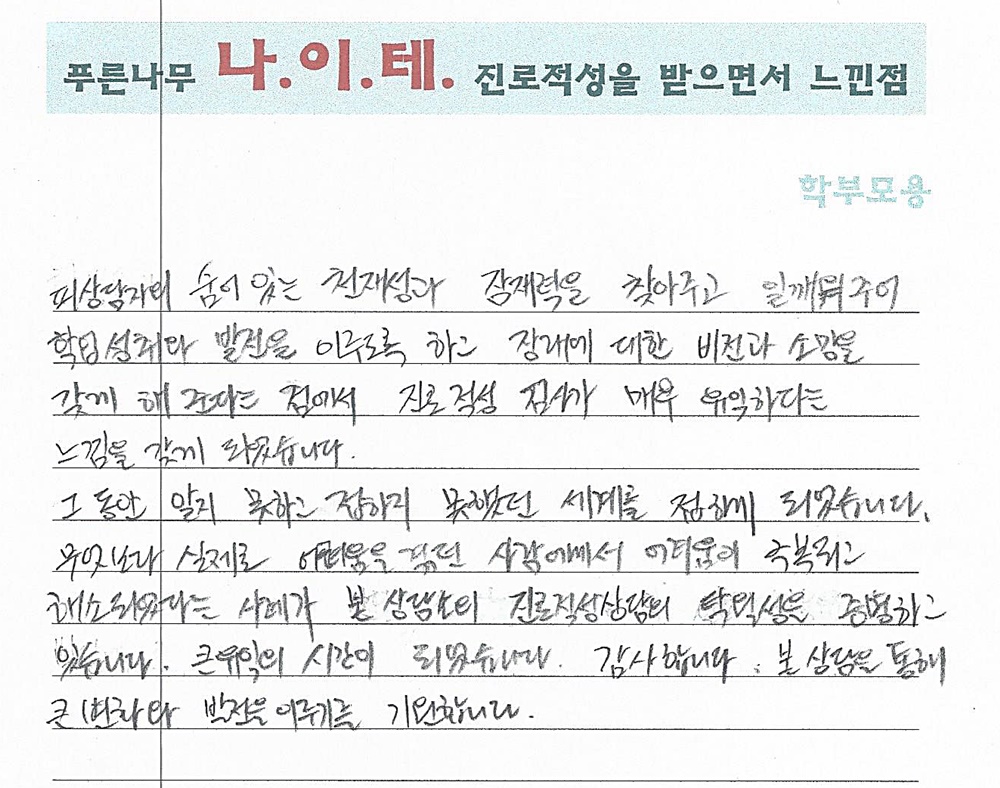 푸른나무 나.이.테. 진로적성을 받으면서 느낀점
학부모용
피상담자의 숨어 있는 천재성과 잠재력을 찾아주고 일깨워주어
학업성취와 발전을 이루도록 하고 장래에 대한 비전과 소망을
갖게 해 준다는 점에서 진로적성 검사가 매우 유익하다는
느낌을 갖게 되었습니다.
그동안 알지 못하고 접하지 못했던 세계를 접하게 되었습니다.
무엇보다 실제로 어려움을 겪던 사람에게서 어려움이 극복되고
해소되었다는 사례가 본 상담소의 진로적성상담의 탁월성을 증명하고
있습니다. 큰 유익의 시간이 되었습니다. 감사합니다. 본 상담을 통해
큰 변화와 발전을 이루기를 기원합니다.